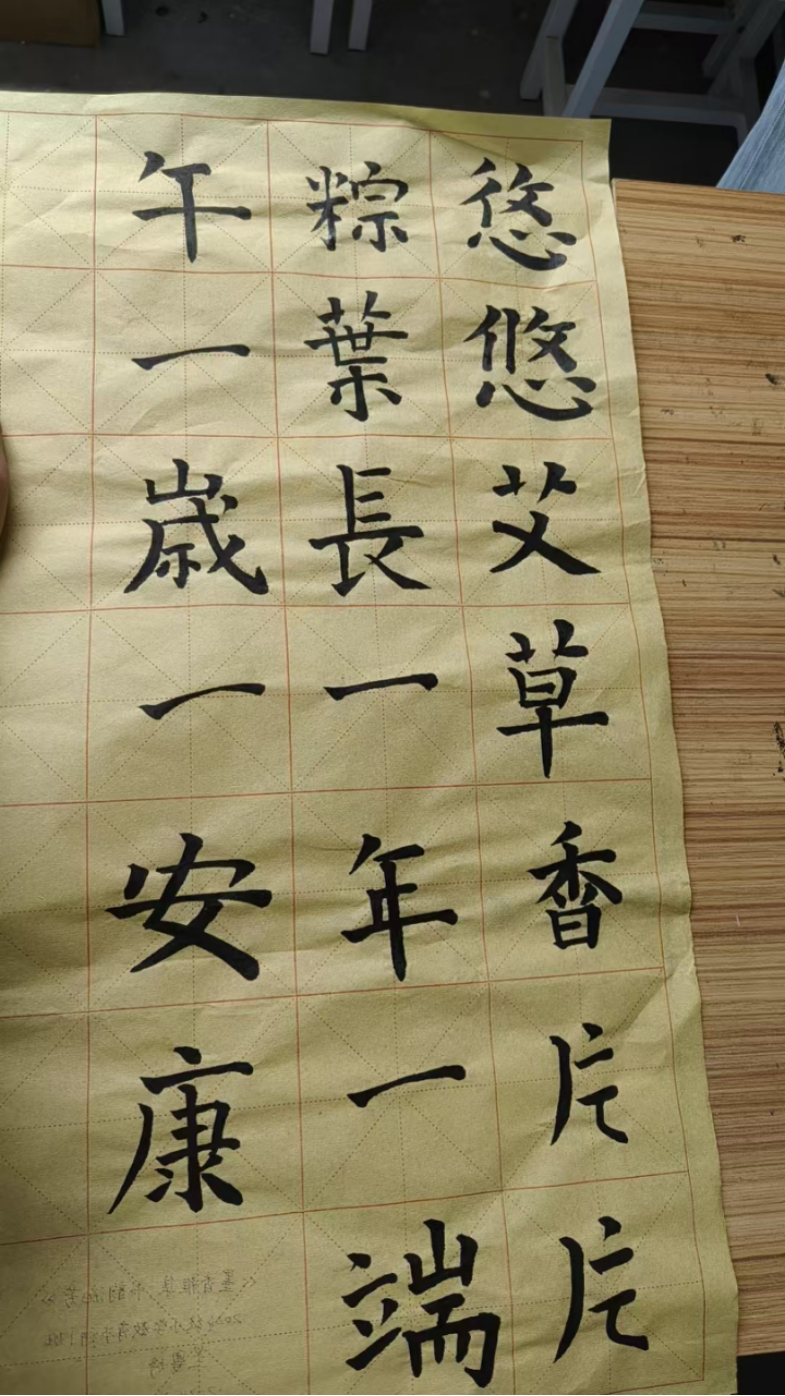 悠悠艾草香片片
粽葉長一年一端
午一歲一安康